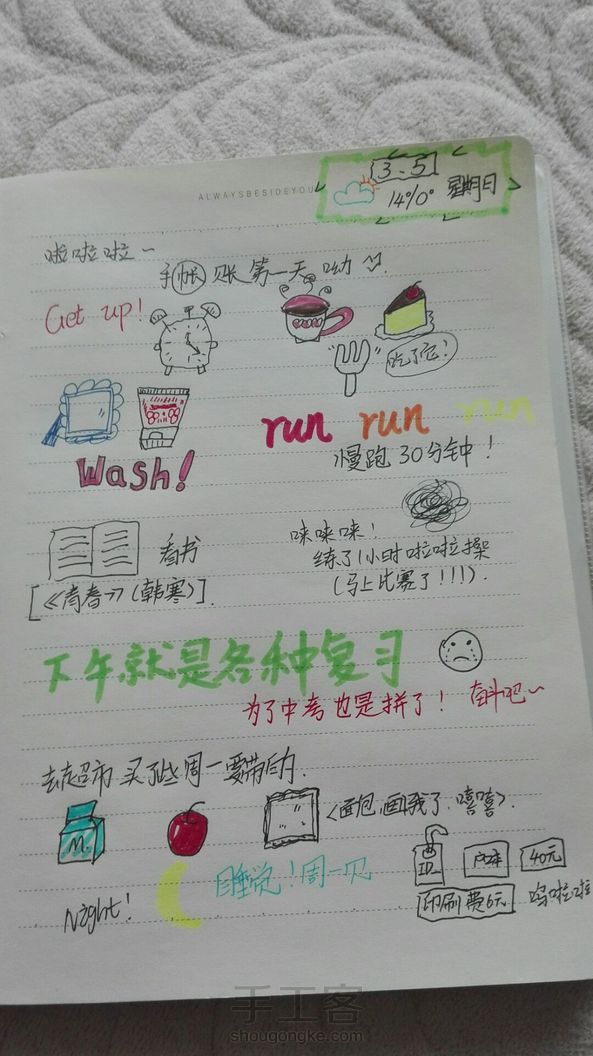 ALWAYSBESIDEYOU
3.5
14°/0° 星期日
啦啦啦~
手帐 账 第一天 呦
Get up!
吃了它!
run run run
慢跑 30分钟!
Wash!
看书
[《青春》(韩寒)]
咪咪咪!
练了1小时啦啦操
(马上比赛了!!!).
下午就是各种复习
为了中考也是拼了! 奋斗吧~
去超市买了些周一要带的.
M.
<面包,画残了.嘻嘻>.
ID
40元
印刷费6元
呜啦啦
Night!
睡觉!周一见
手工客
shougongke.com